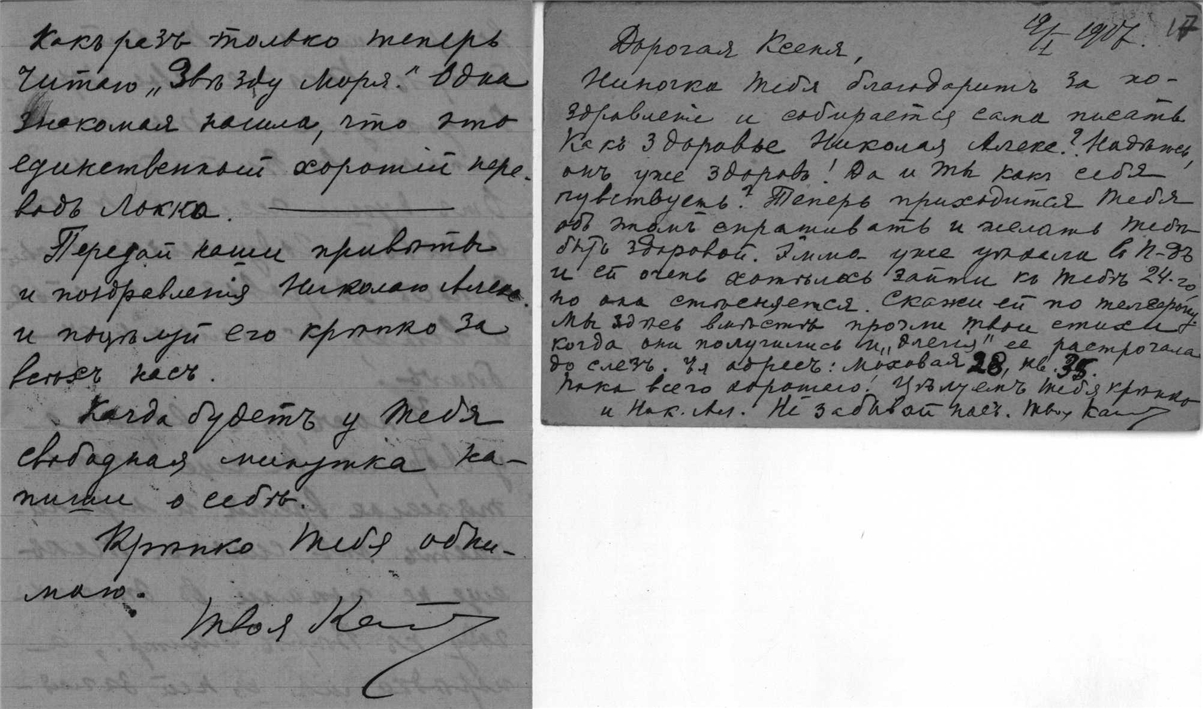 Какъ разъ только теперь
читаю „Звѣзду Моря“. Одна
знакомая нашла, что это
единственный хорошій пере-
водъ Локка.
Передай наши привѣты
и поздравленія Николаю Алекс.
и поцѣлуй его крѣпко за
всѣхъ насъ.
Когда будетъ у тебя
свободная минутка на-
пиши о себѣ.
Крѣпко тебя обни-
маю.
Твоя
19/I 1907.
Дорогая Ксеня,
Ниночка тебя благодаритъ за по-
здравленіе и собирается сама писать
Какъ здоровье Николая Алекс.? Надѣюсь,
онъ уже здоровъ! Да и ты какъ себя
чувствуешь? Теперь приходится тебя
объ этомъ спрашивать и желать тебѣ
быть здоровой. Эмма уже уѣхала въ П-дъ
и ей очень хотѣлось зайти къ тебѣ 24-го
но она стѣсняется. Скажи ей по телефону
Мы здѣсь вмѣстѣ прочли твои стихи
когда они получились и „Оленя“ ее растрогала
до слезъ. Ея адресъ: Моховая 28, кв. 35.
Пока всего хорошаго! Цѣлуемъ тебя крѣпко
и Ник. Ал. Не забывай насъ. Твоя